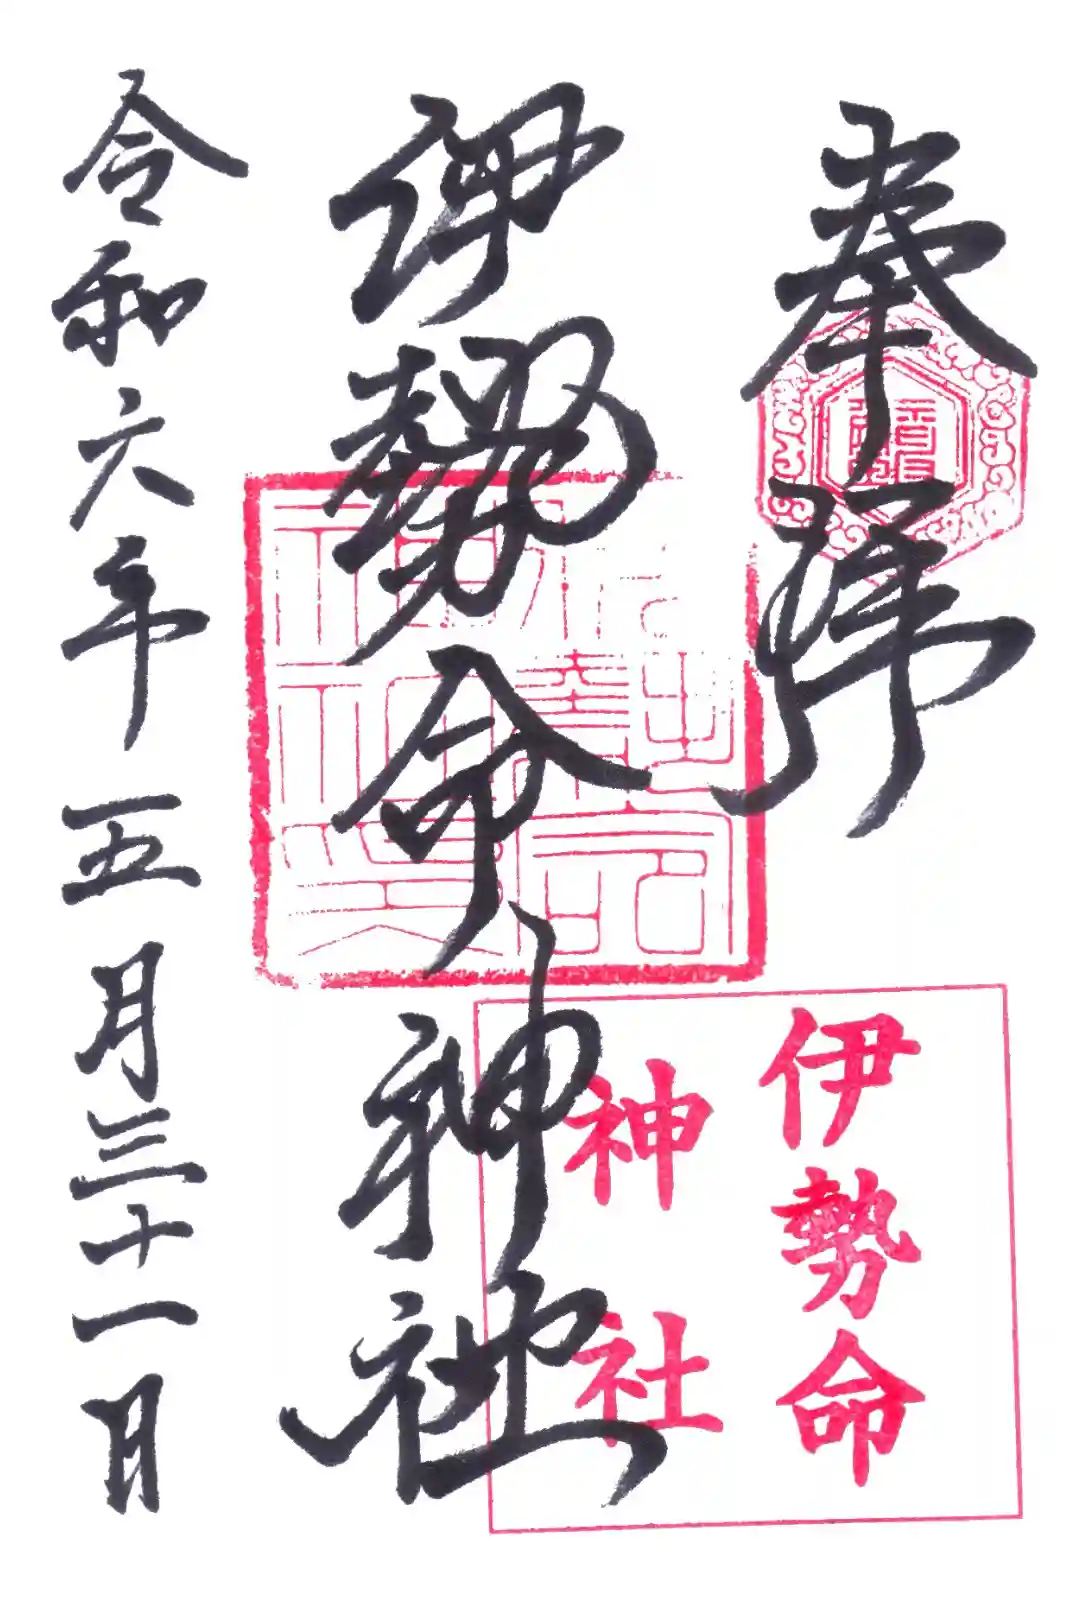 奉拝
伊勢命神社
令和六年五月三十一日
伊勢命
神社